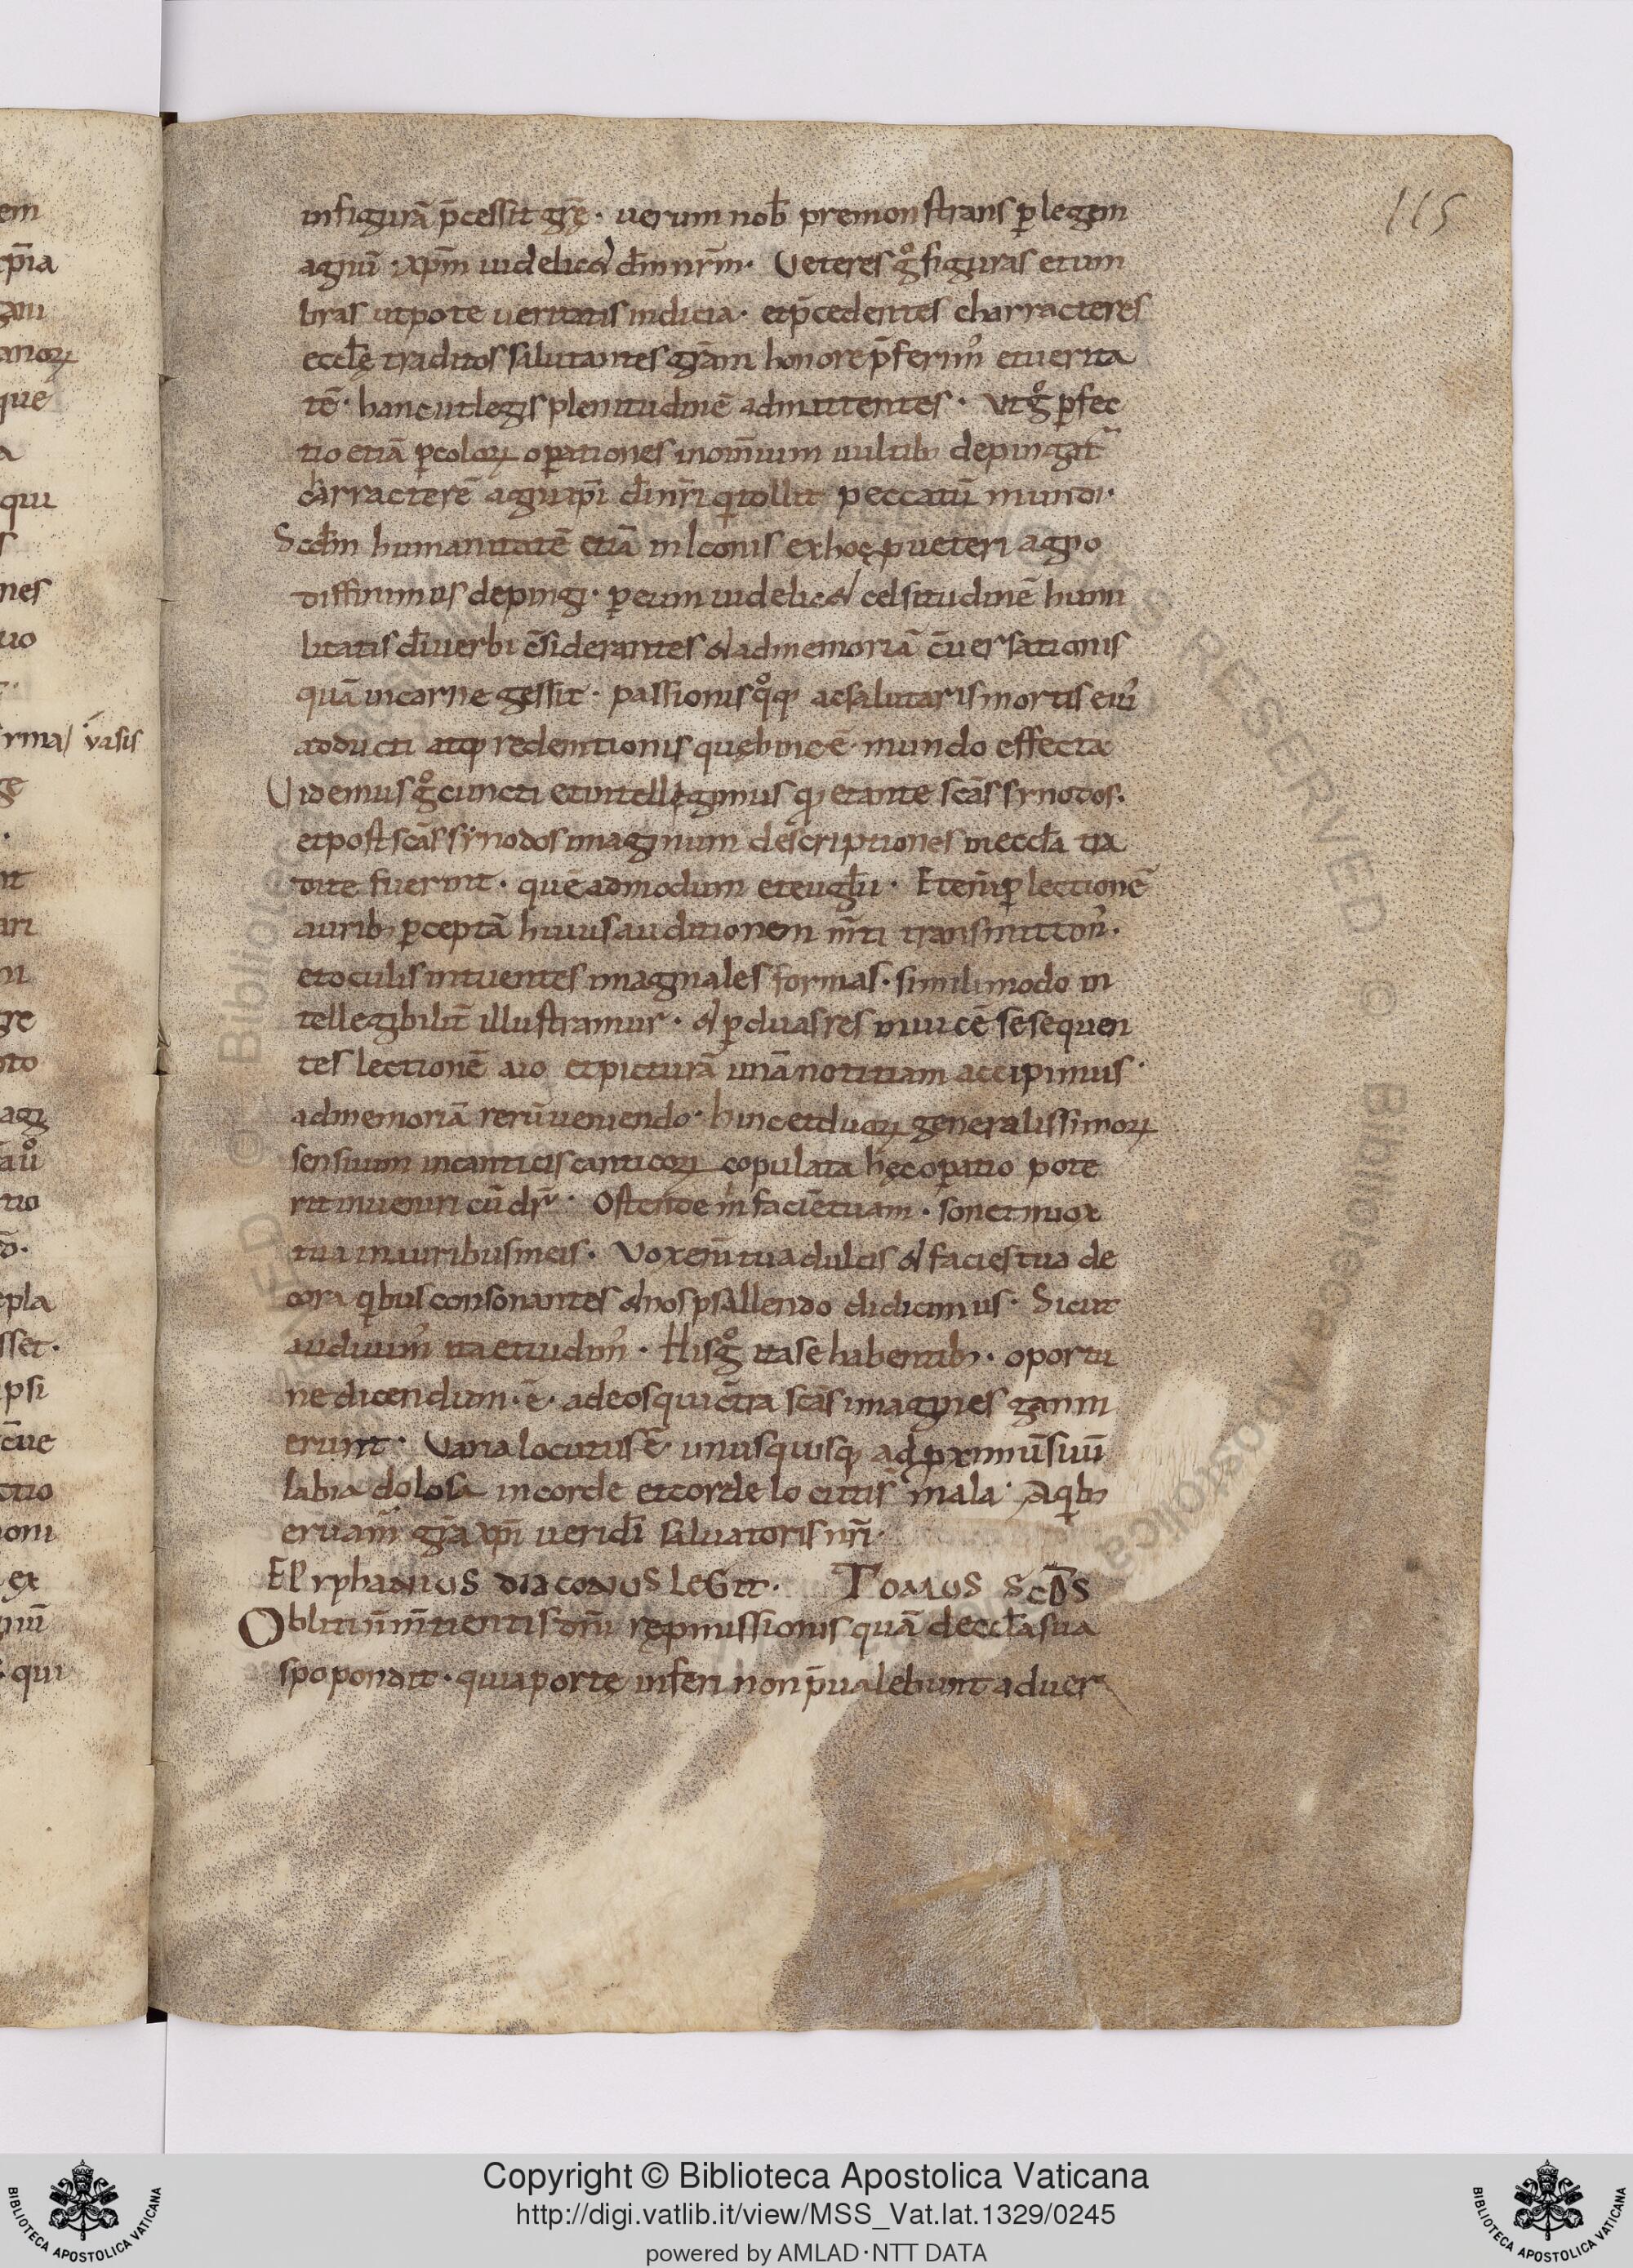 115
infigurā p̄cessit gr̄ę · uerum nob̄ premonstrans ꝑ legem
agnū · xp̄m uidelicet d̄m nr̄m · Ueteres gͦ figuras et um
bras utpote ueritatis indicia · et p̄cedentes charracteres
eccl̄ę traditos salutantes · gr̄am honore p̄ferim᾽ et uerita
tē · hanc ut legis plenitudinē admittentes · Ut gͦ ꝑfec
tio etiā ꝑ coloꝝ oꝑationes in om̄ium uultib; depingat᷑
carracterē agni xp̄i d̄i nr̄i qͥ tollit peccatū mundi ·
Scd̄m humanitatē etiā in Iconis ex hoc ꝓ ueteri agno
diffinimus depingi · ꝑ eum uidelicet celsitudinē humi
litatis d̄i uerbi c̄siderantes et ad memoriā c̄uersationis
quā in carne gessit · passionis qͦq; ac salutaris mortis ei᾽
adducti atq; redemtionis quę hinc ē · mundo effecta
Uidemus gͦ cuncti et intellegimus qꝫ et ante sc̄as synodos ·
et post sc̄as synodos imaginum descriptiones in eccl̄a tra
dite fuerint · quēadmodum et eugl̄ii · Eteni᷑ ꝑ lectionē
aurib; ꝑceptā huius auditionem m̄ti transmittim᾽ ·
et oculis intuentes imaginales formas · simili modo in
tellegibilit᷑ illustramur · et ꝑ duas res inuicē se sequen
tes lectionē aio et picturā unā notitiam accipimus ·
ad memoriā rerū ueniendo · hinc et duoꝝ generalissimoꝝ
sensuum in canticis canticoꝝ copulata hęc oꝑatio pote
rit inueniri cū dr̄ · Ostende m̄ faciē tuam · sonet uox
tua in auribus meis · Vox eni᷑ tua dulcis et facies tua de
cora qͥbus consonantes et nos psallendo dicimus · Sicut
audiuim᾽ ita et uidim᾽ · His gͦ ita se habentib; · oportu
ne dicendum · ē · ad eos qui c̄tra sc̄as imagines ganni
erunt · Uana locutus ē unusquisq; ad ꝓximū suū
labia dolosa in corde et corde locutis᷑ mala · A qͥb;
eruam᷑ gr̄a xp̄i ueri d̄i saluatoris nr̄i ·
EPYPHANIUS DIACONUS LEGIT · TOMUS SCD̄S
Obliti n̄ m̄tientis dn̄i repmissionis quā de eccl̄a sua
spopondit · quia portę inferi non p̄ualebunt aduer
Copyright © Biblioteca Apostolica Vaticana
http://digi.vatlib.it/view/MSS_Vat.lat.1329/0245
powered by AMLAD·NTT DATA